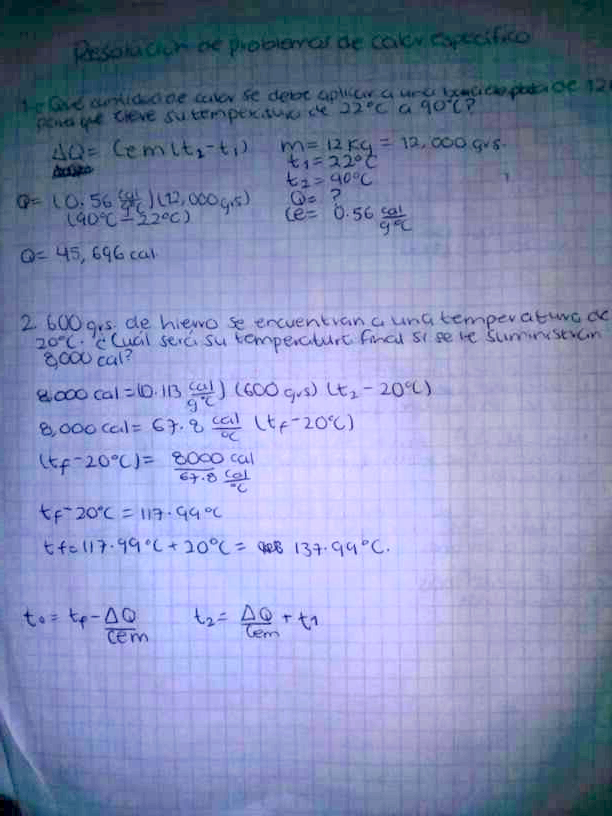 Resolución de problemas de calor específico
1. ¿Qué cantidad de calor se debe aplicar a una barra de plata de 12
para que eleve su temperatura de 22°C a 90°C?
ΔQ = Ce m (t2 - t1)
m = 12 Kg = 12,000 grs.
t1 = 22°C
t2 = 90°C
Q = ?
Ce = 0.56 cal/g°C
Q = (0.56 cal/g°C) (12,000 grs)
(90°C - 22°C)
Q = 45,696 cal
2. 600 grs. de hierro se encuentran a una temperatura de
20°C. ¿Cuál será su temperatura final si se le suministran
8,000 cal?
8,000 cal = (0.113 cal/g°C) (600 grs) (t2 - 20°C)
8,000 cal = 67.8 cal/°C (tf - 20°C)
(tf - 20°C) = 8000 cal / 67.8 cal/°C
tf - 20°C = 117.99°C
tf = 117.99°C + 20°C = 137.99°C.
t0 = tf - ΔQ/Cem t2 = ΔQ/Cem + t1